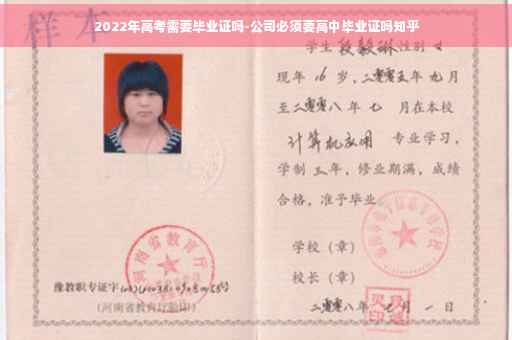 2022年高考需要毕业证吗-公司必须要高中毕业证吗知乎
样本
学生段毅琳性别女
现年16岁，二零零五年九月
至二零零八年七月在本校
计算机应用 专业学习，
学制三年，修业期满，成绩
合格，准予毕业
学校（章）
校长（章）
二零零八年七月一日
河南省教育厅
豫教职专证字
（河南省教育厅验印）